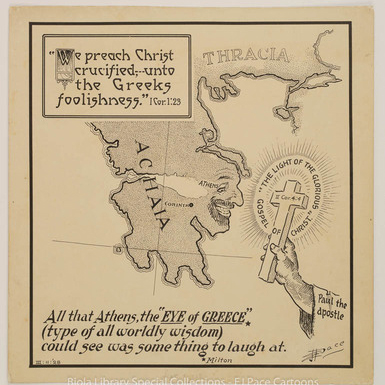 "We preach Christ
crucified;--unto
the Greeks
foolishness." I Cor. 1:23
THRACIA
ACHAIA
ATHENS
CORINTH
"THE LIGHT OF THE GLORIOUS
GOSPEL OF CHRIST."
II Cor. 4:4
Paul the
apostle
All that Athens, the "EYE of GREECE"*
(type of all worldly wisdom)
could see was some thing to laugh at.
*Milton
EJPace
Biola Library Special Collections - EJ Pace Cartoons